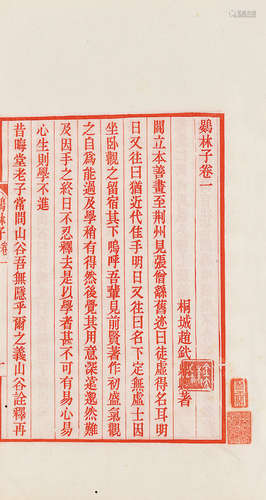 鷃林子卷一
桐城趙釴鼎卿著
閻立本善畫至荆州見張僧繇舊迹曰徒虛得名耳明
日又往曰猶近代佳手明日又往曰名下定無虛士因
坐臥觀之留宿其下嗚呼吾輩見前賢著作初盛氣觀
之自爲能過及學稍有得然後覺其用意深遠邈然難
及因手之終日不忍釋去是以學者甚不可有易心易
心生則學不進
昔晦堂老子常問山谷吾無隱乎爾之義山谷詮釋再
鷃林子卷一
一